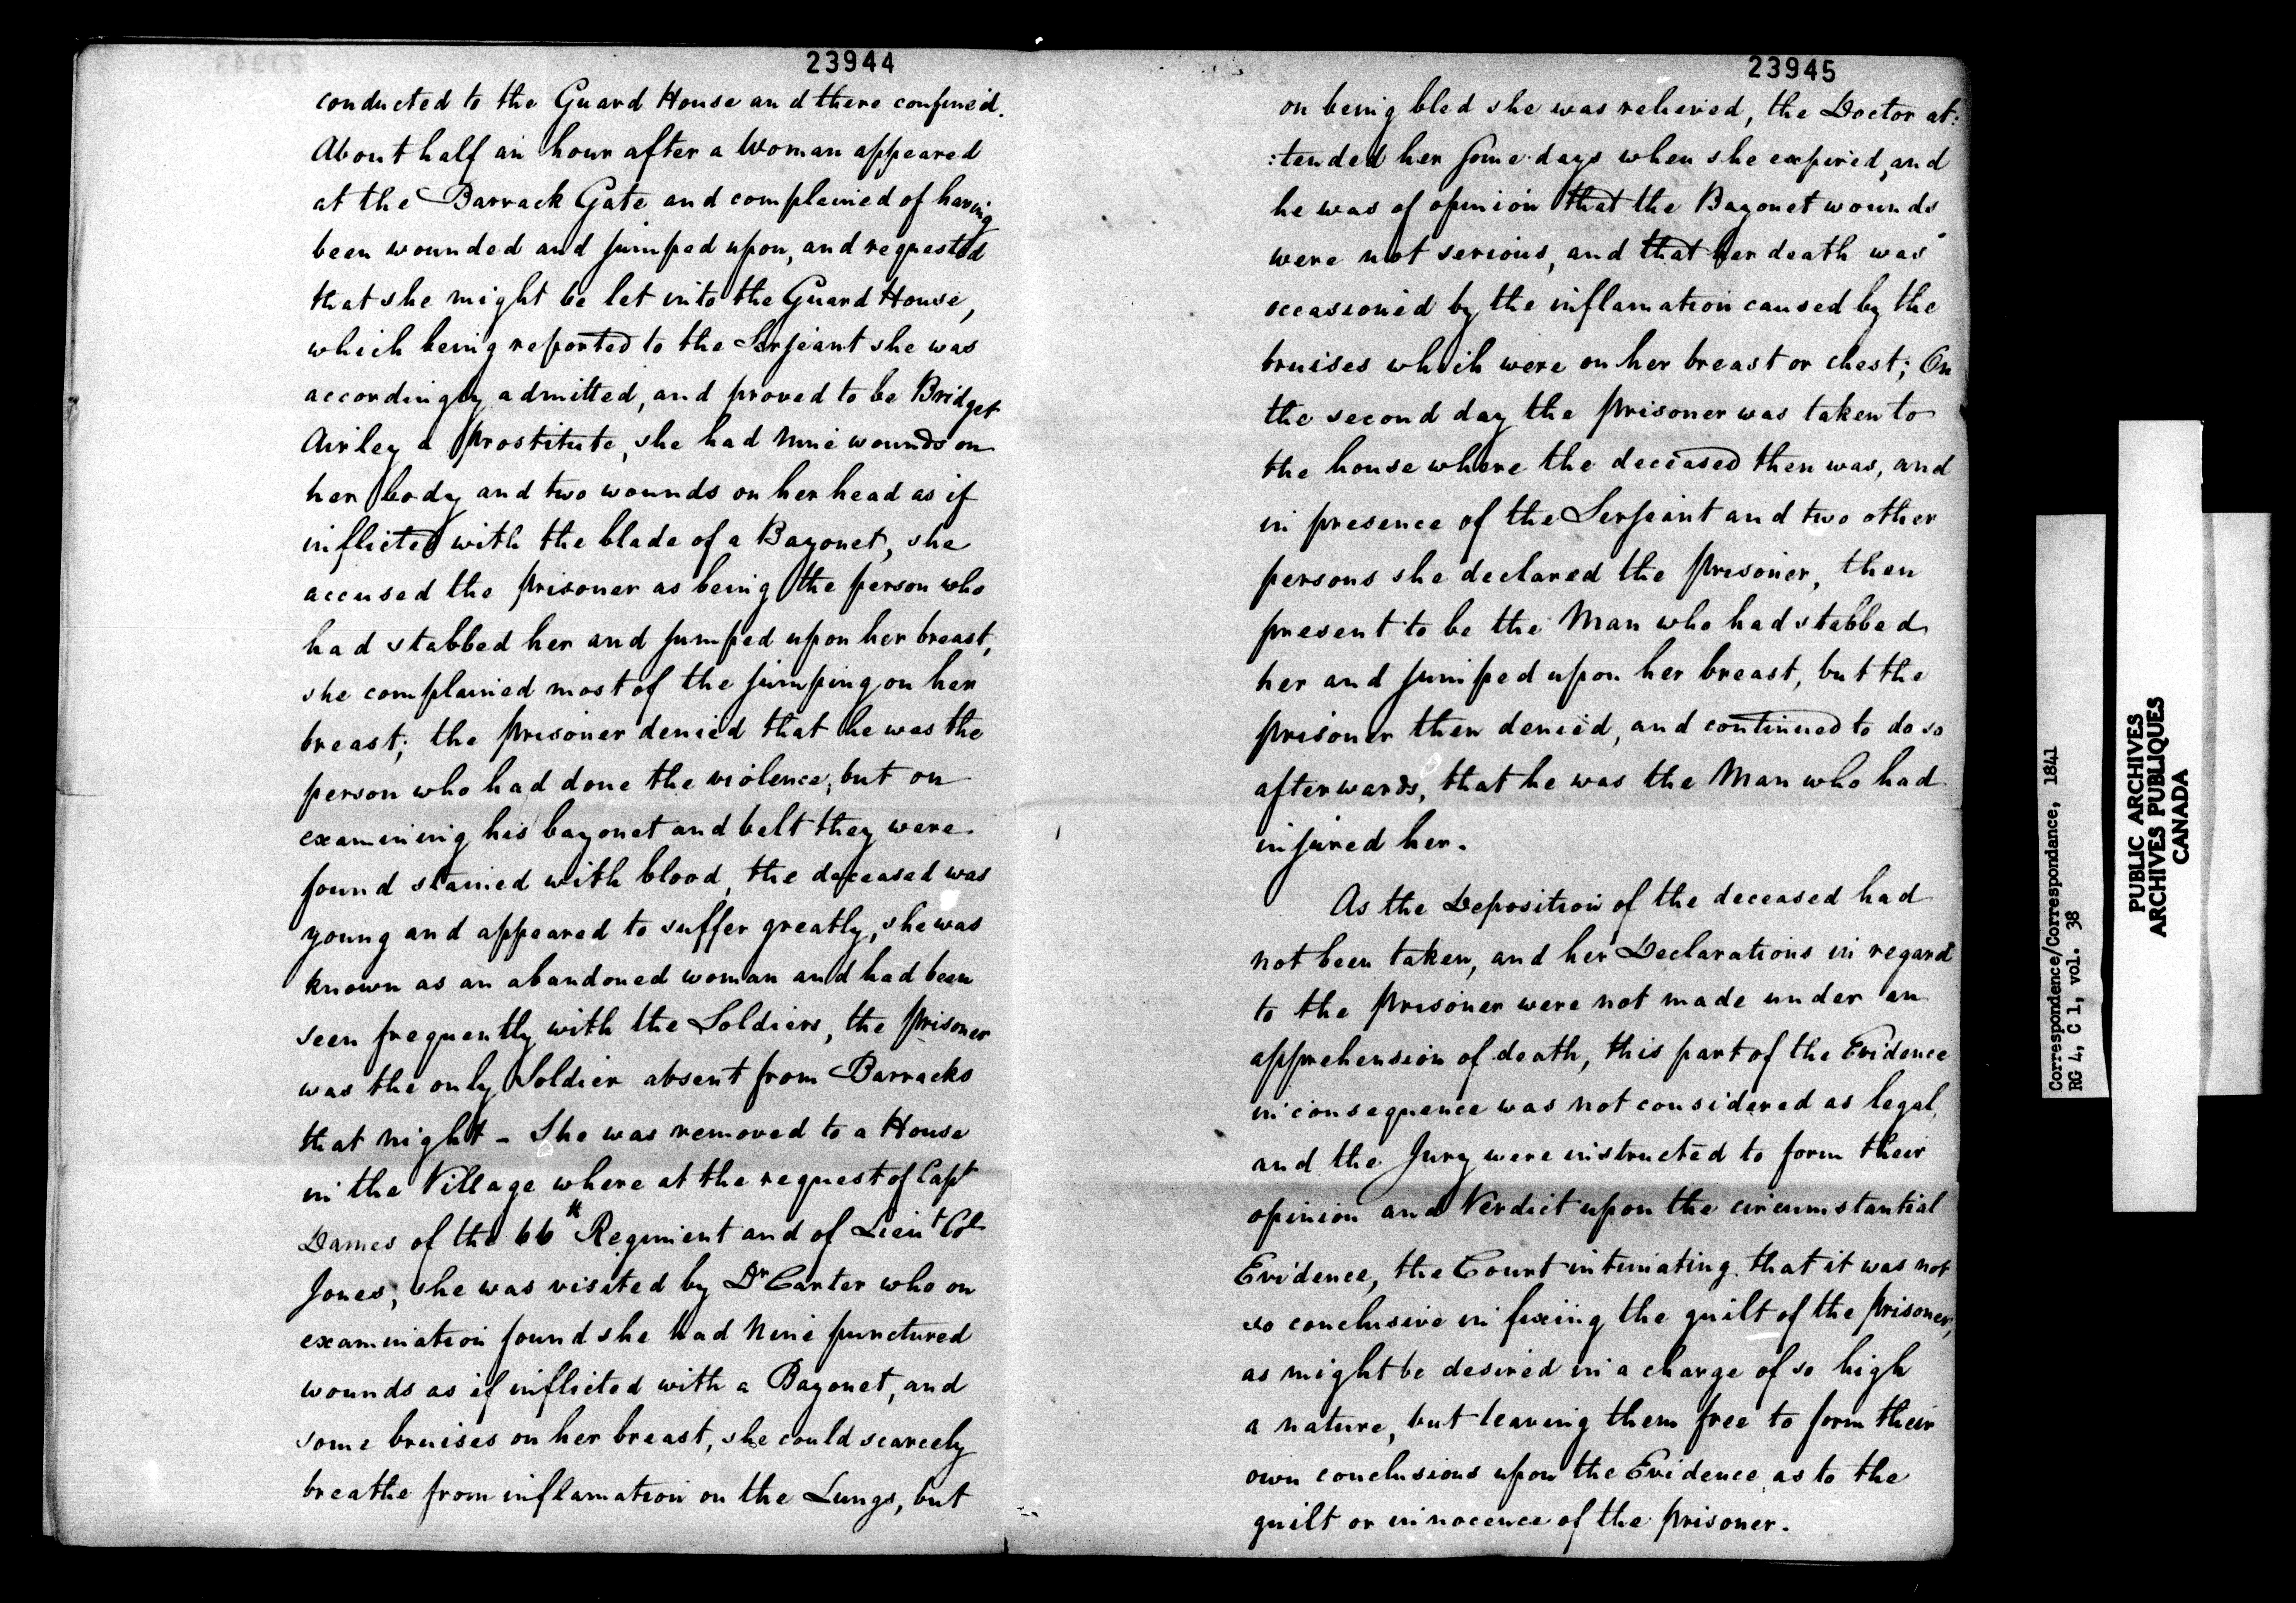 23944
conducted to the Guard House and there confined.
About half an hour after a Woman appeared
at the Barrack Gate and complained of having
been wounded and jumped upon, and requested
that she might be let into the Guard House,
which being reported to the Serjeant she was
accordingly admitted, and proved to be Bridget
Airley a prostitute, she had nine wounds on
her body and two wounds on her head as if
inflicted with the blade of a Bayonet, she
accused the prisoner as being the person who
had stabbed her and jumped upon her breast,
she complained most of the jumping on her
breast; the prisoner denied that he was the
person who had done the violence, but on
examining his bayonet and belt they were
found stained with blood, the deceased was
young and appeared to suffer greatly, she was
known as an abandoned woman and had been
seen frequently with the Soldiers, the prisoner
was the only Soldier absent from Barracks
that night - She was removed to a House
in the Village where at the request of Capt
Dames of the 66th Regiment and of Lieut Col
Jones, she was visited by Dr Carter who on
examination found she had nine punctured
wounds as if inflicted with a Bayonet, and
some bruises on her breast, she could scarcely
breathe from inflamation on the Lungs, but
23945
on being bled she was relieved, the Doctor at:
:tended her some days when she expired, and
he was of opinion that the Bayonet wounds
were not serious, and that her death was
occasioned by the inflamation caused by the
bruises which were on her breast or chest; On
the second day the prisoner was taken to
the house where the deceased then was, and
in presence of the Serjeant and two other
persons she declared the prisoner, then
present to be the Man who had stabbed
her and jumped upon her breast, but the
prisoner then denied, and continued to do so
afterwards, that he was the Man who had
injured her.
As the Deposition of the deceased had
not been taken, and her Declarations in regard
to the prisoner were not made under an
apprehension of death, this part of the Evidence
in consequence was not considered as legal,
and the Jury were instructed to form their
opinion and Verdict upon the circumstantial
Evidence, the Court intimating that it was not
so conclusive in fixing the guilt of the prisoner,
as might be desired in a charge of so high
a nature, but leaving them free to form their
own conclusions upon the Evidence as to the
guilt or innocence of the prisoner.
Correspondence/Correspondance, 1841
RG 4, C 1, vol. 38
PUBLIC ARCHIVES
ARCHIVES PUBLIQUES
CANADA